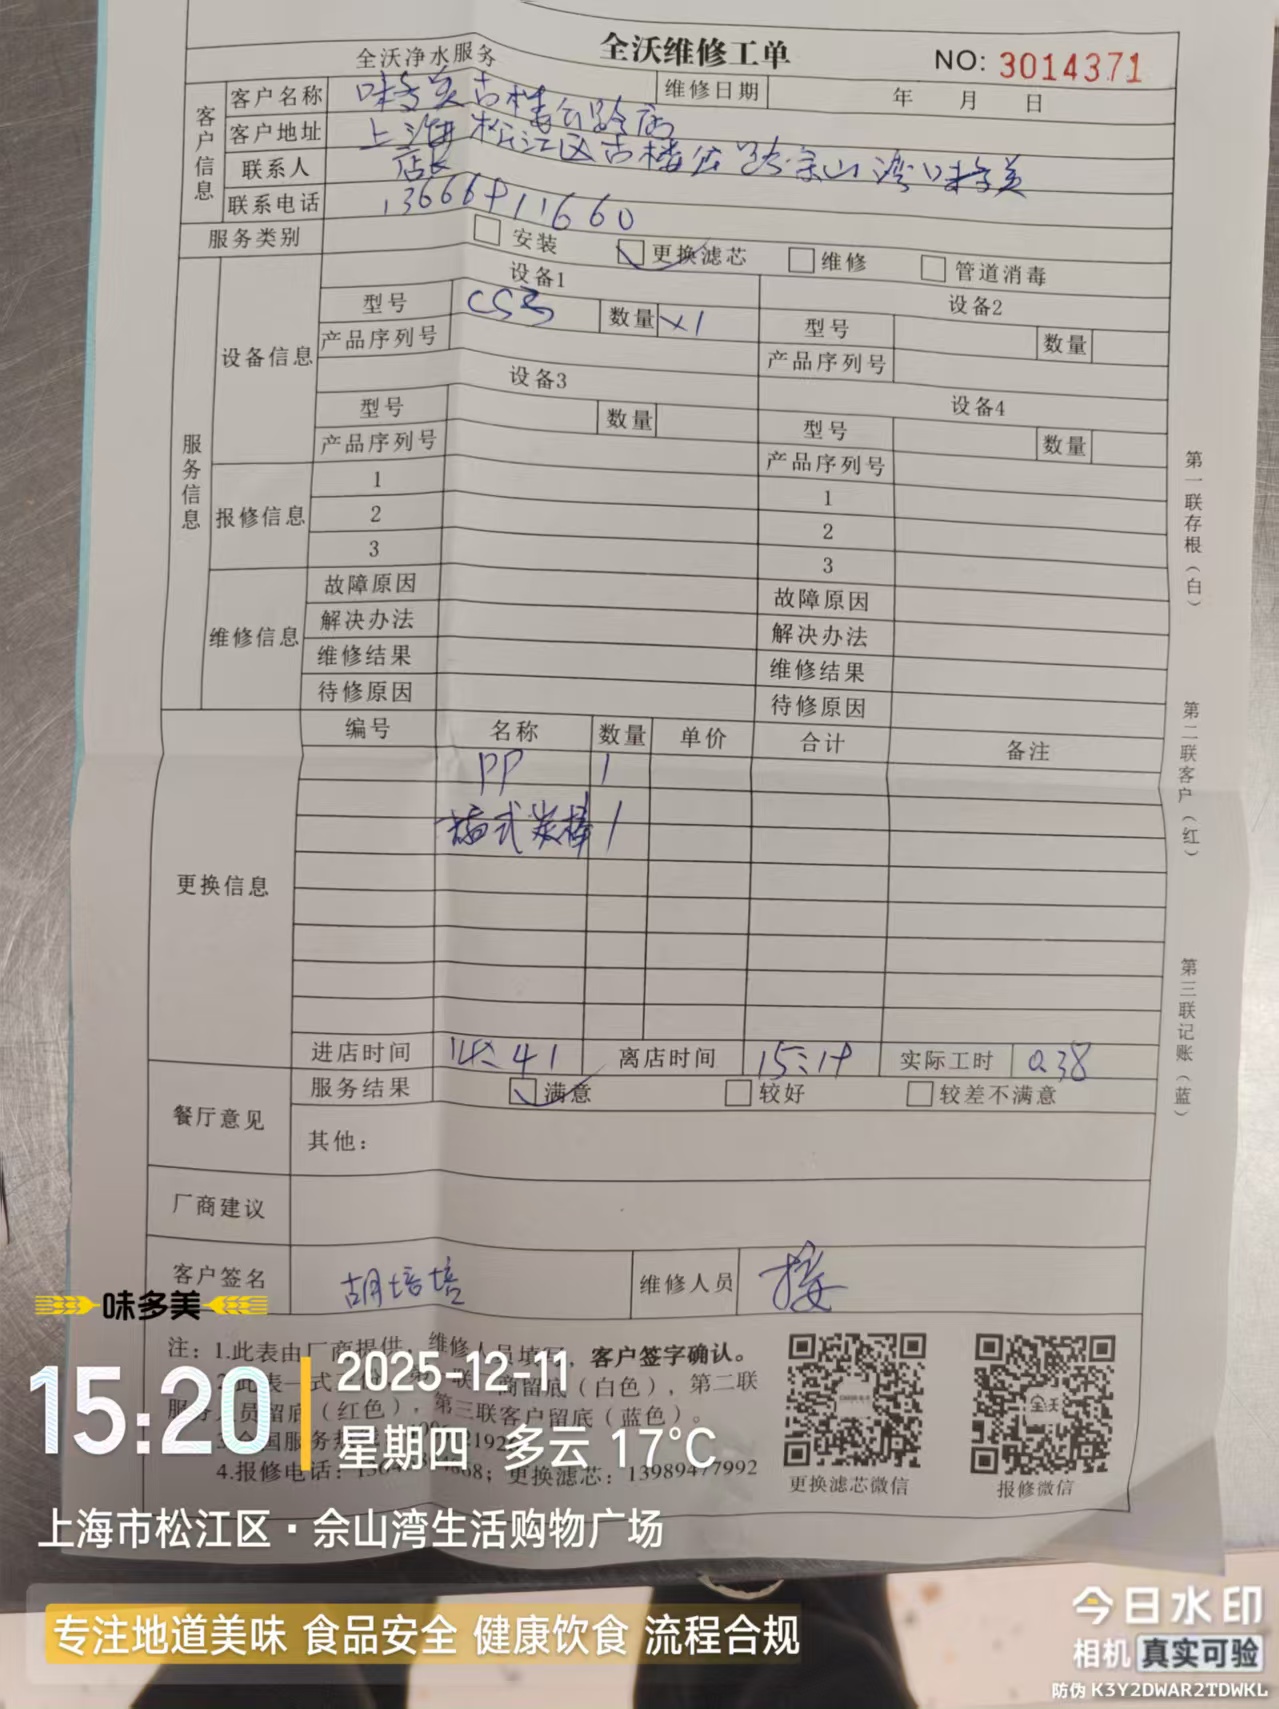 全沃净水服务
全沃维修工单
NO: 3014371
客户信息
客户名称 味多美古楼公路店
维修日期 年 月 日
客户地址 上海松江区古楼公路佘山湾味多美
联系人 店长
联系电话
服务类别 安装 更换滤芯 维修 管道消毒
服务信息
设备信息
设备1 设备2
型号 CS3 数量 x1 型号 数量
产品序列号 产品序列号
设备3 设备4
型号 数量 型号 数量
产品序列号 产品序列号
报修信息
1 1
2 2
3 3
维修信息
故障原因 故障原因
解决办法 解决办法
维修结果 维修结果
待修原因 待修原因
更换信息
编号 名称 数量 单价 合计 备注
PP 1
插式炭棒 1
进店时间 14:41 离店时间 15:19 实际工时 0.38
餐厅意见
服务结果 满意 较好 较差不满意
其他：
厂商建议
客户签名 胡培培 维修人员
注：1.此表由厂商提供，维修人员填写，客户签字确认。
商留底（白色），第二联
员留底（红色），第三联客户留底（蓝色）。
4.报修电话： 更换滤芯：13989477992
更换滤芯微信
报修微信
第一联存根（白）
第二联客户（红）
第三联记账（蓝）
味多美
15:20
2025-12-11
星期四 多云 17℃
上海市松江区·佘山湾生活购物广场
专注地道美味 食品安全 健康饮食 流程合规
今日水印
相机 真实可验
防伪 K3Y2DWAR2TDWKL